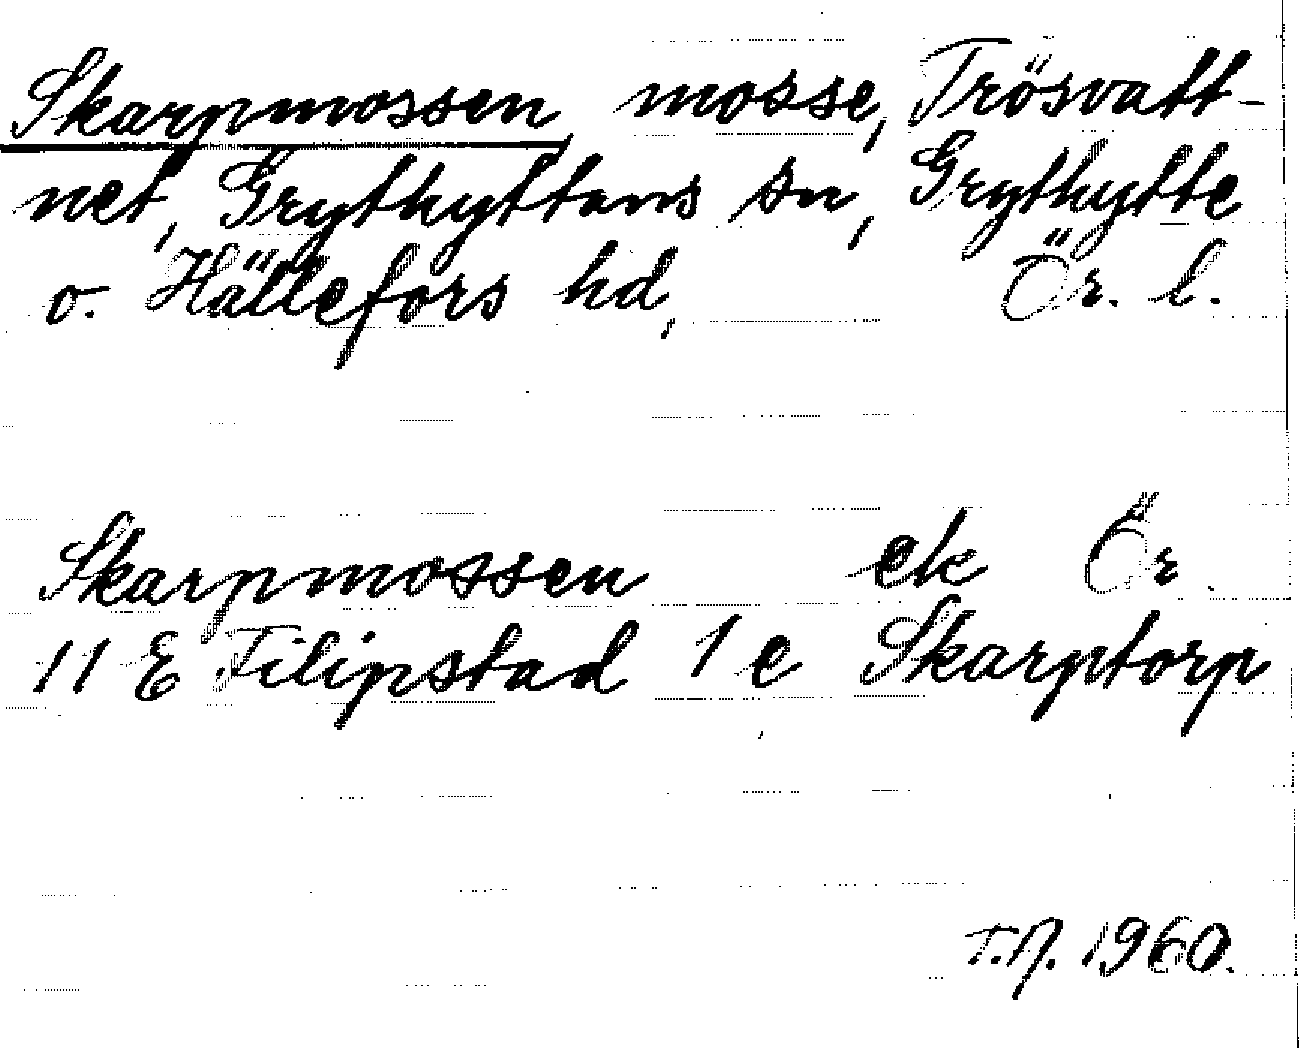 Skarpmossen, mosse, Trösvatt-
net, Grythyttans sn, Grythytte
o. Hällefors hd, Ör. l.
Skarpmossen ek Ör.
11 E Filipstad 1 e Skarptorp
T.A. 1960.